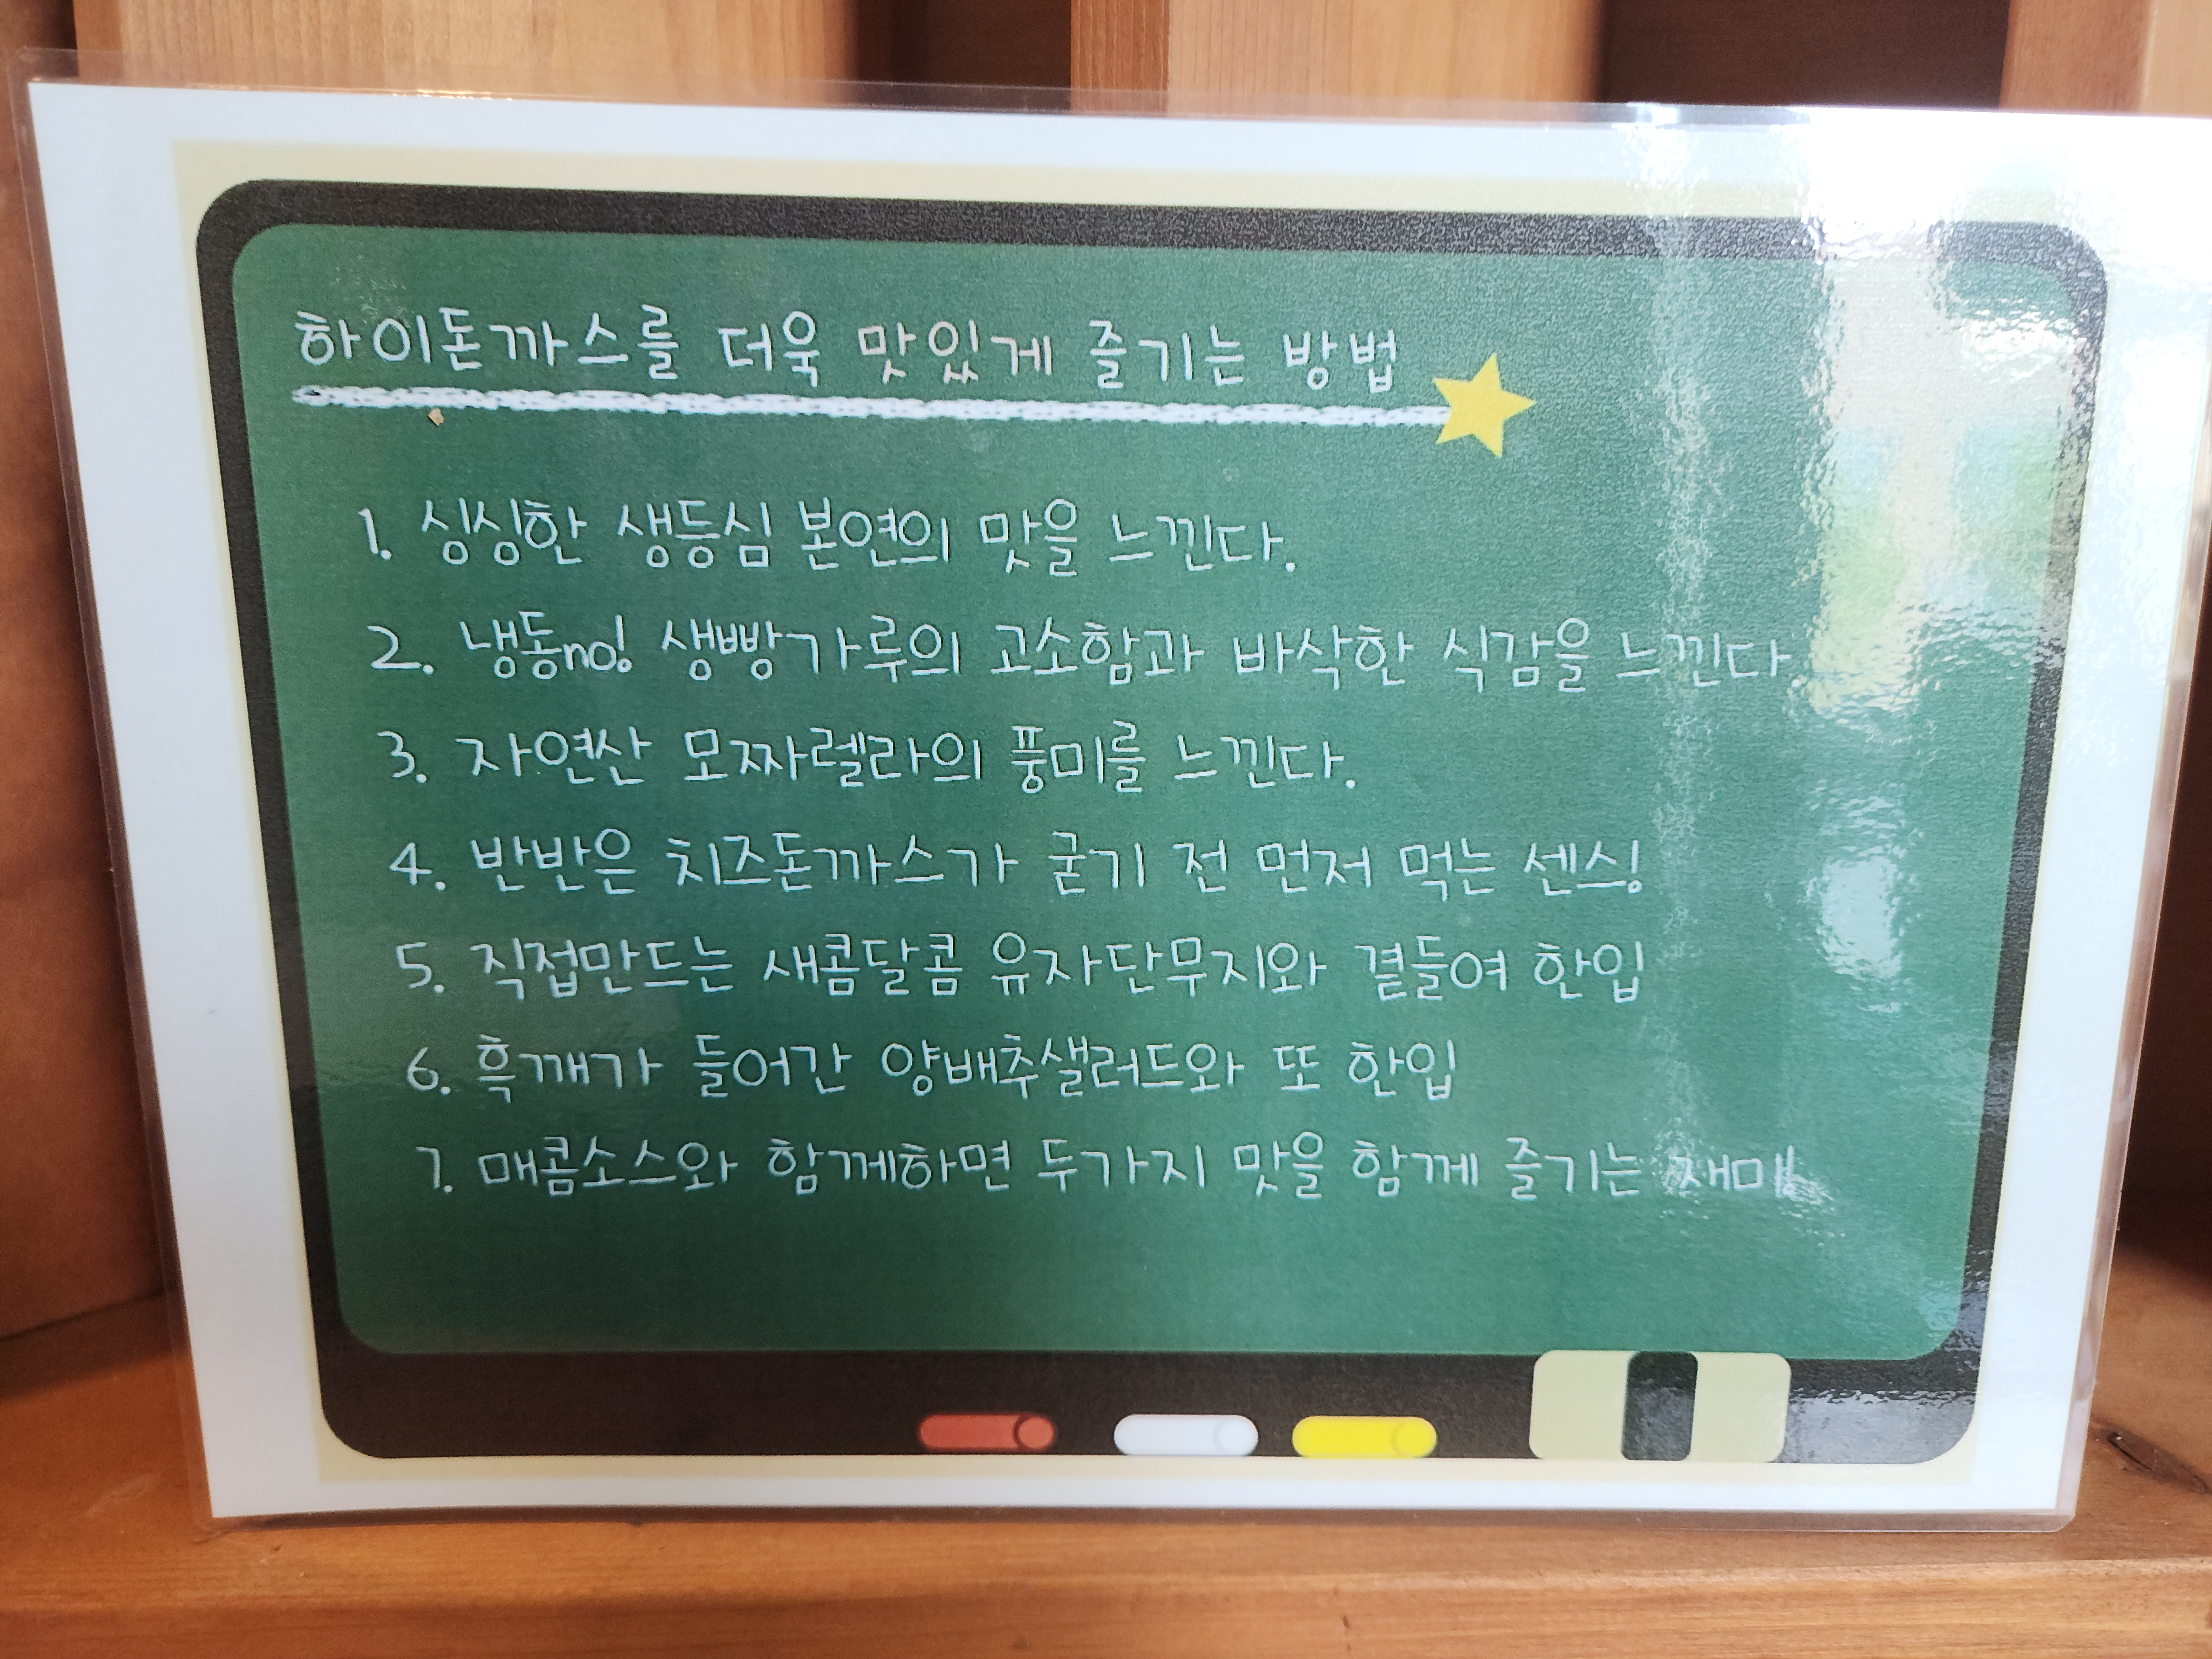 하이돈까스를 더욱 맛있게 즐기는 방법
1. 싱싱한 생등심 본연의 맛을 느낀다.
2. 냉동no! 생빵가루의 고소함과 바삭한 식감을 느낀다.
3. 자연산 모짜렐라의 풍미를 느낀다.
4. 반반은 치즈돈까스가 굳기 전 먼저 먹는 센스!
5. 직접만드는 새콤달콤 유자단무지와 곁들여 한입
6. 흑깨가 들어간 양배추샐러드와 또 한입
7. 매콤소스와 함께하면 두가지 맛을 함께 즐기는 재미!